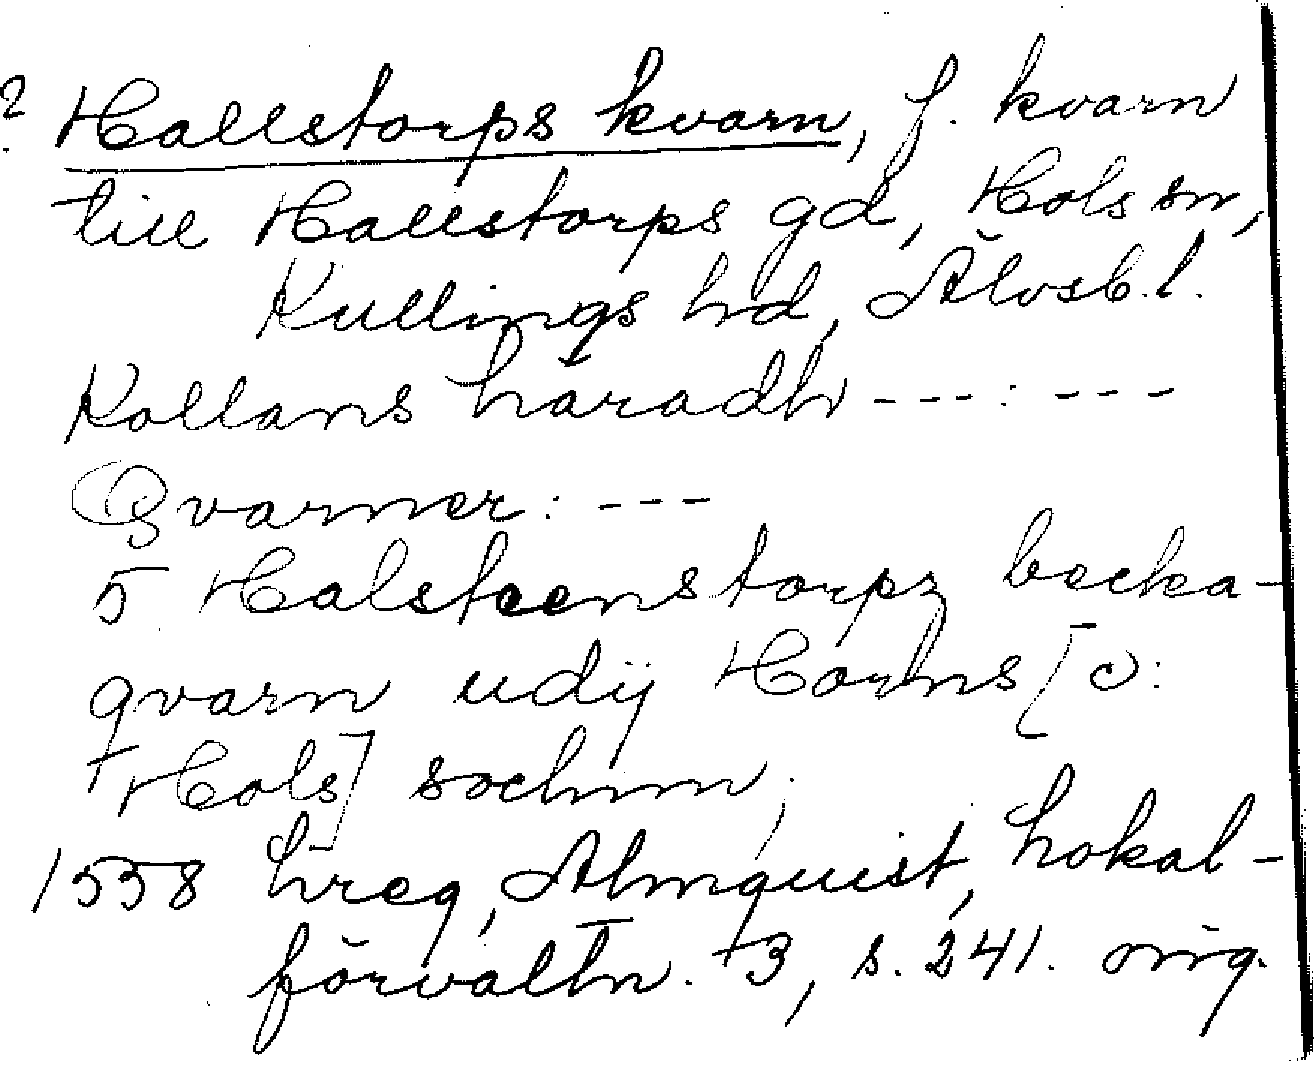 ? Hallstorps kvarn, f. kvarn
till Hallstorps gd, Hols sn,
Kullings hd, Älvsb. l.
Kollans häradh ---:---
Qvarner: ---
5 Halsteenstorpz becka-
qvarn udij Horlns [ɔ:
Hols] sochnn;
1558 hreg, Almquist, Lokal-
förvaltn. 3, s. 241. orig.